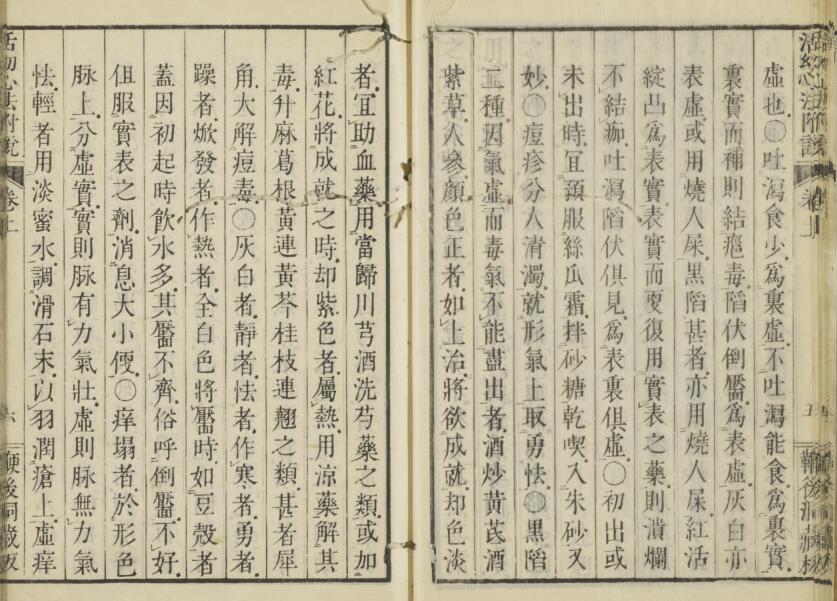 虛也○吐瀉食少爲裏虛不吐瀉能食爲裏實
裏實而補則結癰毒陷伏倒靨爲表虛灰白亦
表虛或用燒人屎黑陷甚者亦用燒人屎紅活
綻凸爲表實表實而更復用實表之藥則潰爛
不結痂吐瀉陷伏俱見爲表裏俱虛○初出或
未出時宜預服絲瓜霜拌砂糖乾喫入朱砂又
妙○痘疹分人清濁就形氣上取勇怯○黑陷
二種因氣虛而毒氣不能盡出者酒炒黃芪酒
紫草人參顏色正者如上治將欲成就却色淡
者宜助血藥用當歸川芎酒洗芍藥之類或加
紅花將成就之時却紫色者屬熱用涼藥解其
毒升麻葛根黃連黃芩桂枝連翹之類甚者犀
角大解痘毒○灰白者靜者怯者作寒者勇者
躁者焮發者作熱者全白色將靨時如豆殼者
蓋因初起時飲水多其靨不齊俗呼倒靨不好
但服實表之劑消息大小便○痒塌者於形色
脉上分虛實實則脉有力氣壯虛則脉無力氣
怯輕者用淡蜜水調滑石末以羽潤瘡上虛痒
卷上
六